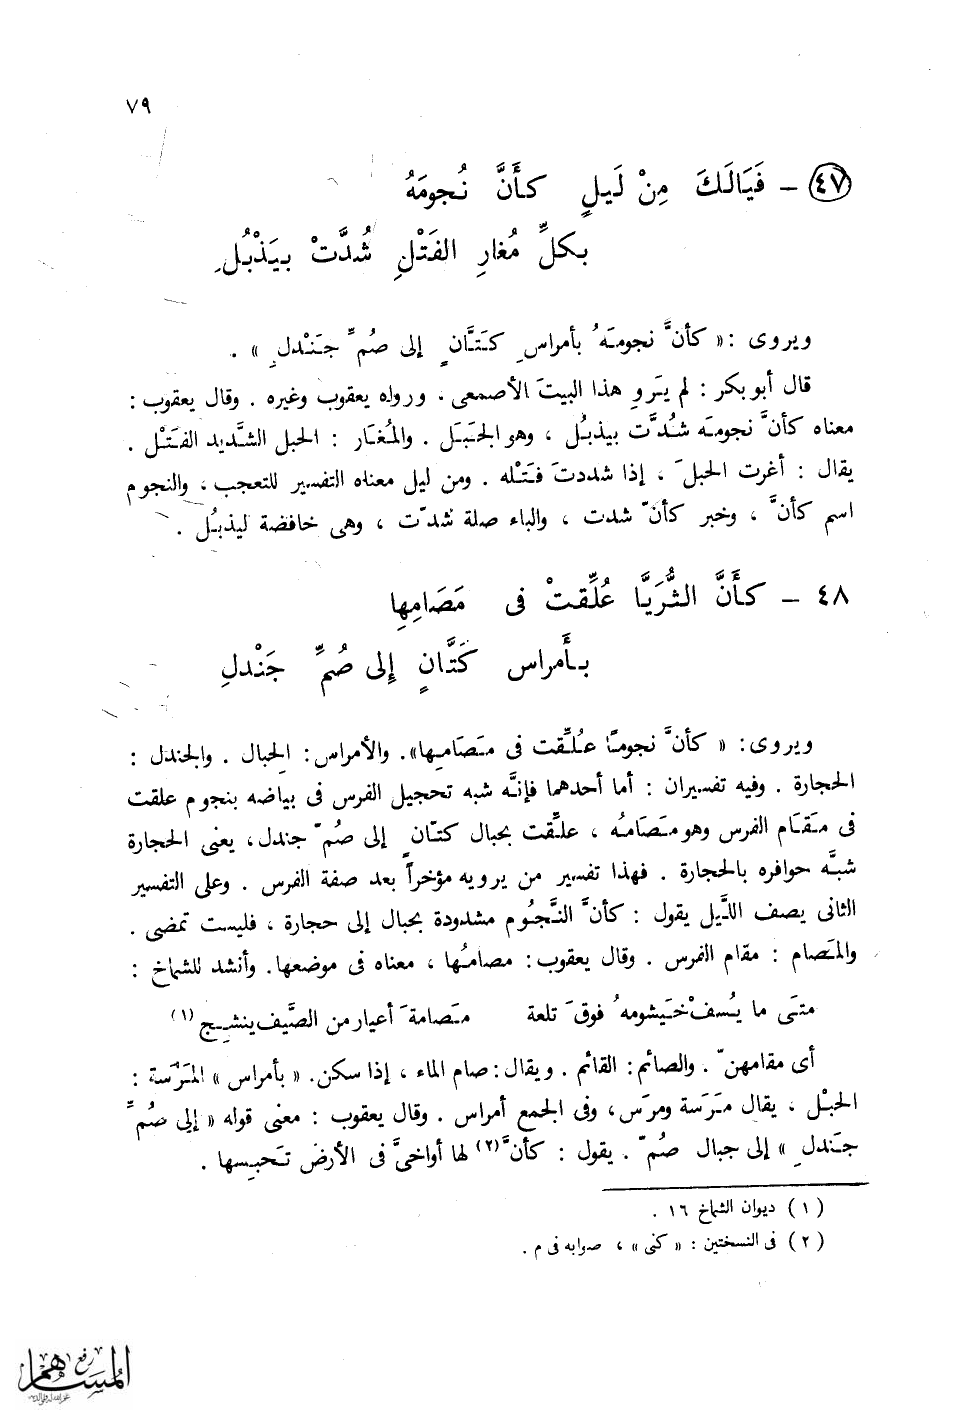 ٧٩
٤٧ – فَيَالَكَ مِنْ لَيلٍ كأَنَّ نُجومَهُ
بكلِّ مُغارِ الفَتْلِ شُدَّتْ بيَذْبُلِ
ويروى : « كأنَّ نجومَهُ بأمراسِ كَتَّانٍ إلى صُمِّ جَنْدلِ » .
قال أبو بكر : لم يَروِ هذا البيتَ الأصمعى ، ورواه يعقوب وغيره . وقال يعقوب :
معناه كأنَّ نجومَه شُدَّت بيذبُل ، وهو الجَبَل . والمُغَار : الحبل الشَّديد الفَتْل .
يقال : أغرت الحبلَ ، إذا شددتَ فَتْله . ومن ليل معناه التفسير للتعجب ، والنجوم
اسم كأنَّ ، وخبر كأنّ شدت ، والباء صلة شدّت ، وهى خافضة ليذبُل .
٤٨ – كأَنَّ الثُّرَيَّا عُلِّقتْ فى مَصَامِها
بأَمراس كَتَّانٍ إلى صُمِّ جَنْدلِ
ويروى : « كأنَّ نجومًا عُلِّقت فى مَصَامِها ». والأمراس : الحِبال . والجندل :
الحجارة . وفيه تفسيران : أما أحدهما فإنَّه شبه تحجيل الفرس فى بياضه بنجوم علقت
فى مَقَام الفرس وهو مَصَامُه ، علِّقت بحبال كتّانٍ إلى صُمّ جندل ، يعنى الحجارة
شبَّه حوافره بالحجارة . فهذا تفسير من يرويه مؤخراً بعد صفة الفرس . وعلى التفسير
الثانى يصف اللَّيل يقول : كأنَّ النَّجُوم مشدودة بحبال إلى حجارة ، فليست تمضى .
والمَصام : مقام الفرس . وقال يعقوب : مصامُها ، معناه فى موضعها. وأنشد للشماخ :
متَى ما يُسفْ خَيشومهُ فوقَ تلعة مَصامةَ أعيار من الصَّيف ينشِجِ (١)
أى مقامهنّ . والصائم : القائم . ويقال : صام الماء ، إذا سكن . « بأمراس » المَرَسة :
الحبْل ، يقال مَرَسة ومرَس ، وفى الجمع أمراس . وقال يعقوب : معنى قوله « إلى صُمِّ
جَندلِ » إلى جبال صُمّ . يقول : كأنَّ (٢) لها أواخىَّ فى الأرض تَحبِسها .
( ١ ) ديوان الشماخ ١٦ .
( ٢ ) فى النسختين : « كنى » ، صوابه فى م .